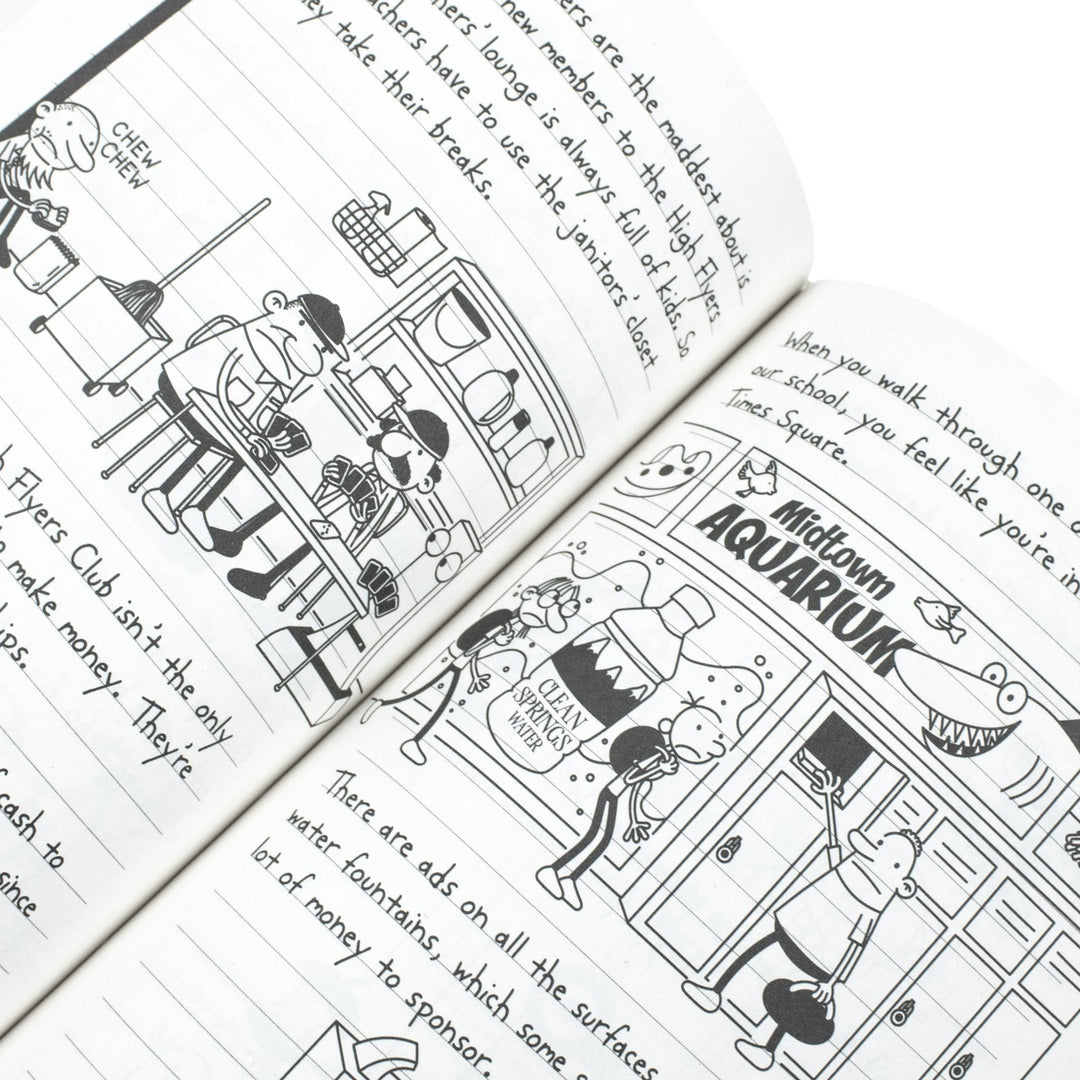 ers are the maddest about is
new members to the High Flyers
hers' lounge is always full of kids. So
achers have to use the janitors' closet
ey take their breaks.
CHEW
CHEW
h Flyers Club isn't the only
make money. They're
ips.
cash to
since
When you walk through one
our school, you feel like you're in
Times Square.
Midtown
AQUARIUM
CLEAN
SPRINGS
WATER
There are ads on all the surfaces
water fountains, which some
lot of money to sponsor.